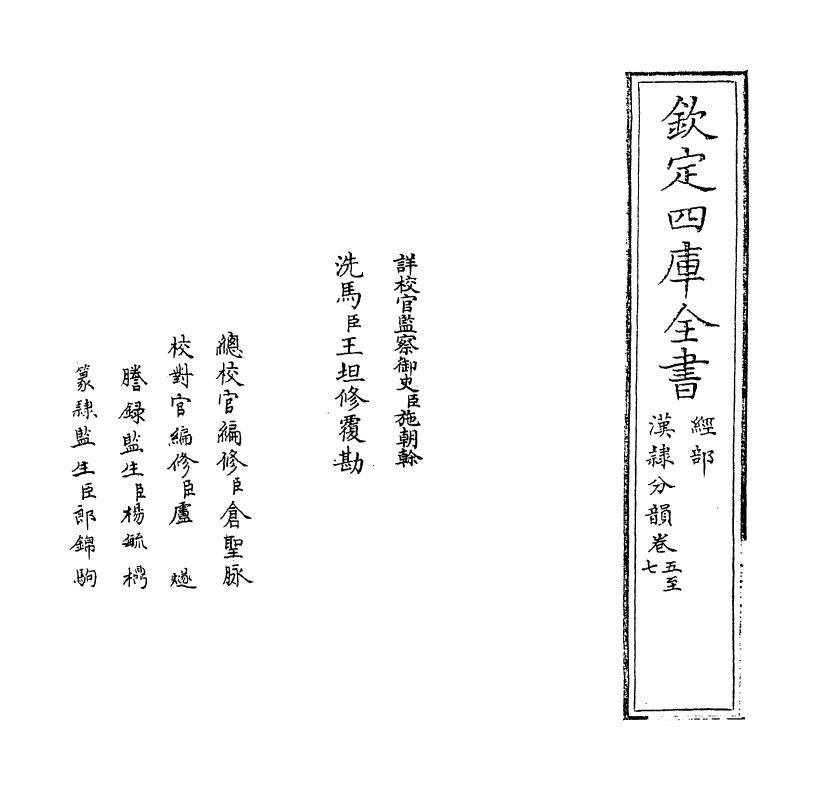 欽定四庫全書
經部
漢隸分韻卷五至七
詳校官監察御史臣施朝幹
洗馬臣王坦修覆勘
總校官編修臣倉聖脉
校對官編修臣盧遂
謄錄監生臣楊毓
篆隸監生臣郎錦駒